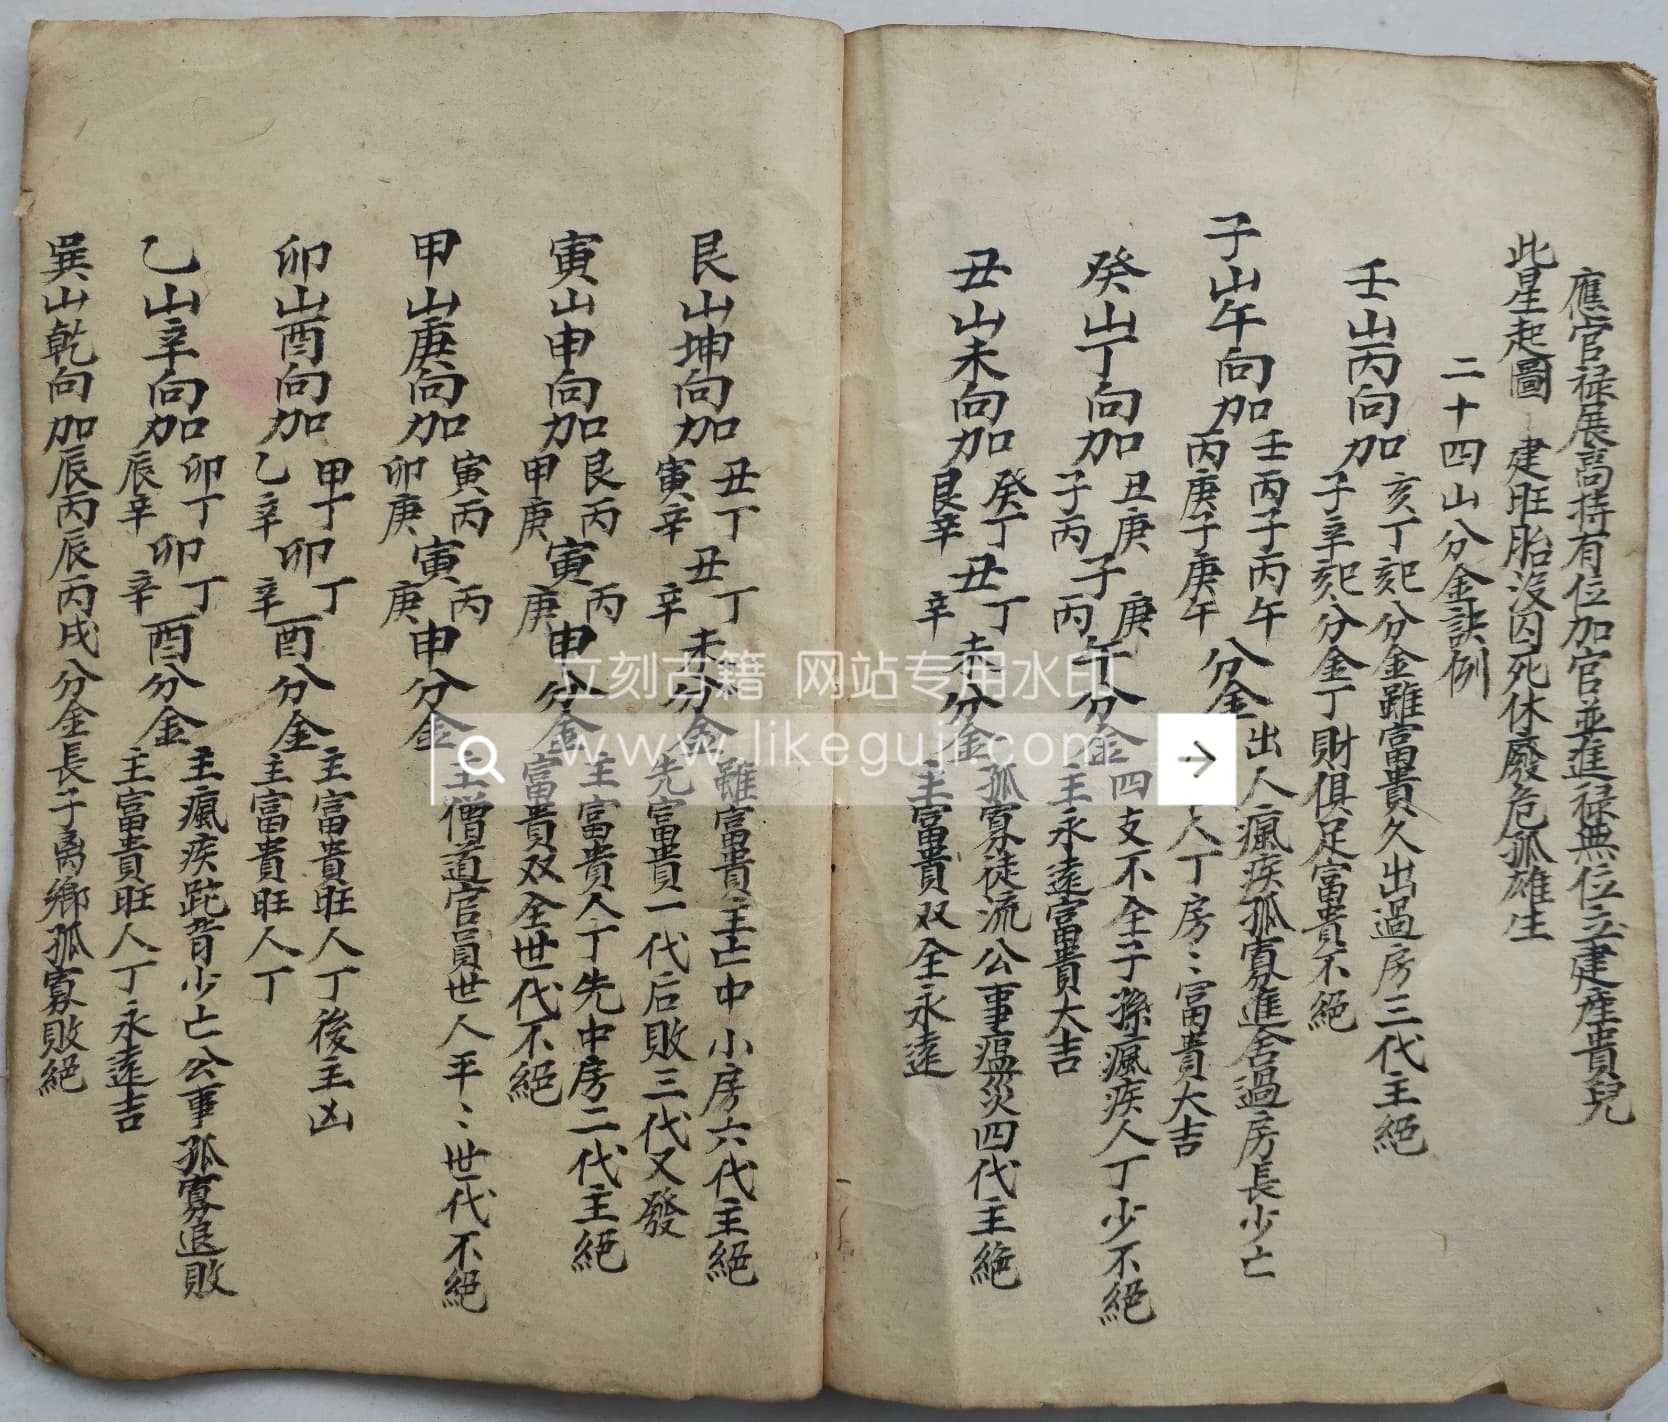 應官禄展高持有位加官並進禄無位立建產貴兒
此星起圖　建旺胎沒囚死休廢危孤雄生
二十四山分金訣例
壬山丙向加
亥丁巳分金雖富貴久出過房三代主絕
子辛亥分金丁財俱足富貴不絕
子山午向加
壬丙子丙午
丙庚子庚午
分金
出人瘋疾孤寡進舍過房長少亡
人丁房〻富貴大吉
癸山丁向加
丑庚
子丙
子
庚
丙
午分金
四支不全子孫瘋疾人丁少不絕
主永遠富貴大吉
丑山未向加
癸丁
艮辛
丑
丁
辛
未分金
孤寡徒流公事瘟災四代主絕
主富貴双全永遠
艮山坤向加
丑丁
寅辛
丑
丁
辛
未分金
雖富貴主亡中小房六代主絕
先富貴一代后敗三代又發
寅山申向加
艮丙
甲庚
寅
丙
庚
申分金
主富貴人丁先中房二代主絕
富貴双全世代不絕
甲山庚向加
寅丙
卯庚
寅
丙
庚
申分金
主僧道官員世人平〻世代不絕
卯山酉向加
甲丁
乙辛
卯
丁
辛
酉分金
主富貴旺人丁後主凶
主富貴旺人丁
乙山辛向加
卯丁
辰辛
卯
丁
辛
酉分金
主瘋疾跎背少亡公事孤寡退敗
主富貴旺人丁永遠吉
巽山乾向加辰丙辰丙戌分金長子离鄉孤寡敗絕
立刻古籍 网站专用水印
www.likeguji.com